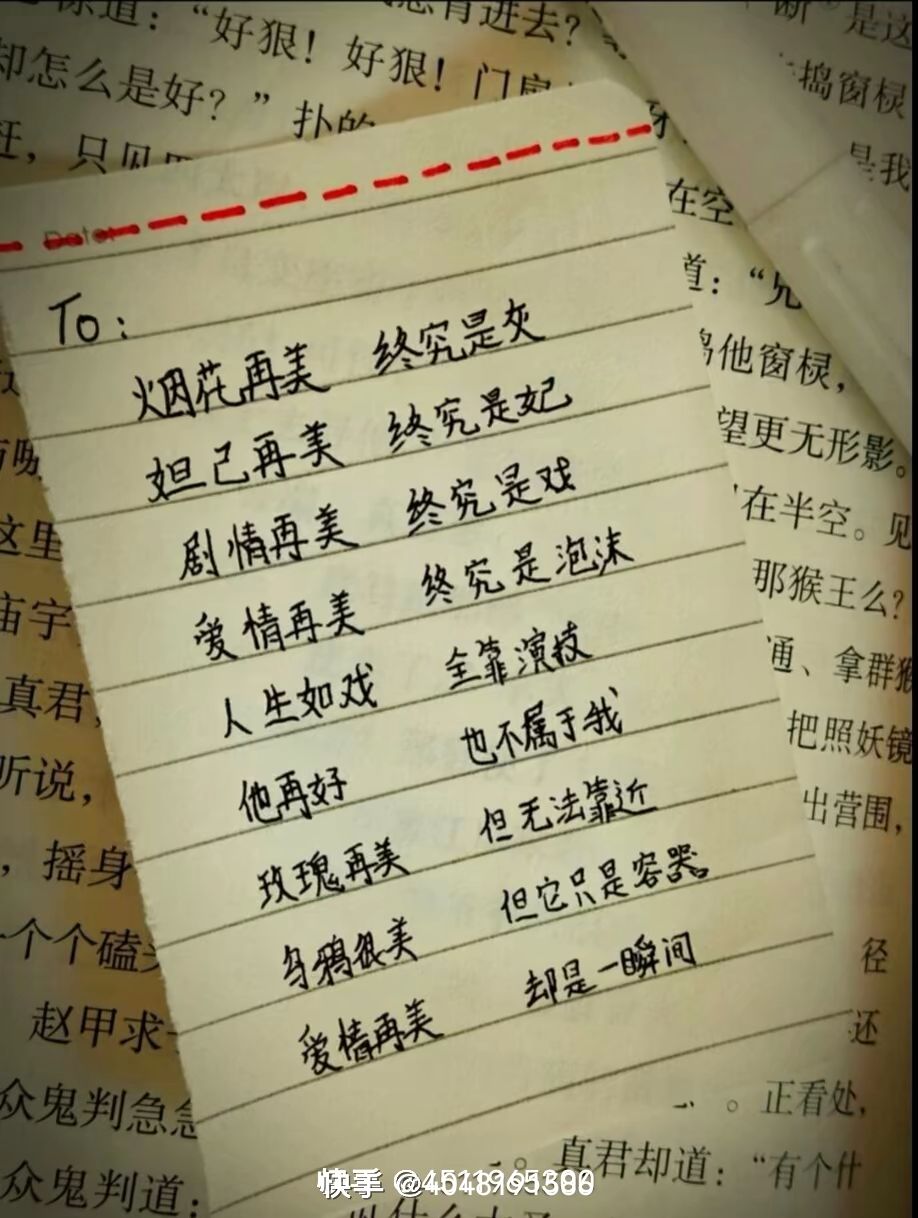 道：“好狠！好狠！门扇
却怎么是好？”扑的
在，只见
是这
捣窗棂
是我
在空
道：“
捣他窗棂，
望更无形影。
在半空。见
那猴王么？
通、拿群猴
把照妖镜
出营围，
这里
庙宇
真君，
听说，
，摇身
一个个磕头
赵甲求
众鬼判急急
众鬼判道：
径
还
。正看处，
。真君却道：“有个什
Date:
To：
烟花再美 终究是灰
妲己再美 终究是妃
剧情再美 终究是戏
爱情再美 终究是泡沫
人生如戏 全靠演技
他再好 也不属于我
玫瑰再美 但无法靠近
乌鸦很美 但它只是容器。
爱情再美 却是一瞬间
快手